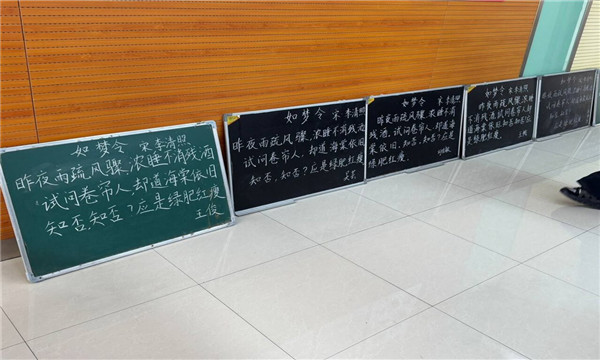 如梦令 宋 李清照
昨夜雨疏风骤,浓睡不消残酒
试问卷帘人,却道海棠依旧
知否,知否?应是绿肥红瘦
王俊
如梦令 宋 李清照
昨夜雨疏风骤,浓睡不消残酒
试问卷帘人,却道海棠依旧
知否,知否?应是绿肥红瘦
如梦令 宋 李清照
昨夜雨疏风骤,浓睡不消
残酒,试问卷帘人,却道海
棠依旧,知否,知否?应是
绿肥红瘦
如梦令 宋 李清照
昨夜雨疏风骤,浓睡
不消残酒,试问卷帘人,却
道海棠依旧,知否知否应
是绿肥红瘦
如梦令